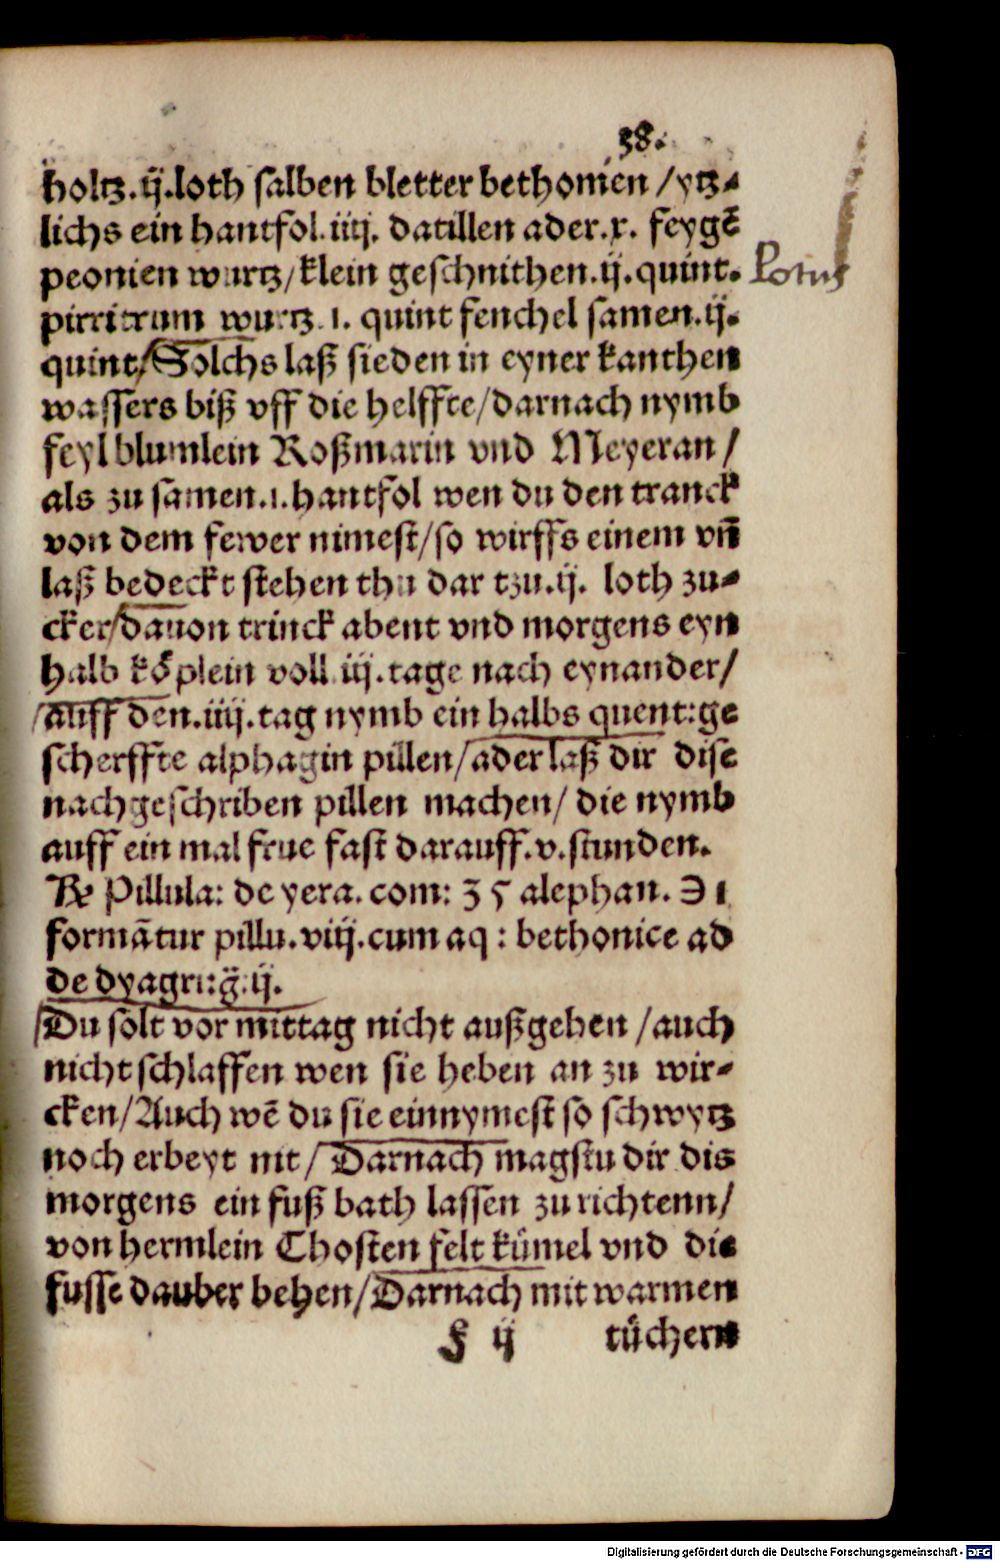 38.
holtz.ij.loth salben bletter bethonien /ytz-
lichs ein hantfol.iiij. datillen ader.x. feygē
peonien wurtz/klein geschnithen.ij.quint.
Potus
pirritrum wurtz.i. quint fenchel samen.ij.
quint/Solchs laß sieden in eyner kanthen
wassers biß vff die helffte/darnach nymb
feyl blumlein Roßmarin vnd Meyeran/
als zu samen.i.hantfol wen du den tranck
von dem fewer nimest/so wirffs einem vn̄
laß bedeckt stehen thu dar tzu.ij. loth zu-
cker/dauon trinck abent vnd morgens eyn
halb köplein voll.iij.tage nach eynander/
auff den.iiij.tag nymb ein halbs quent:ge
scherffte alphagin pillen/ader laß dir dise
nachgeschriben pillen machen/ die nymb
auff ein mal frue fast darauff.v.stunden.
℞ Pillula: de yera. com: ʒ 5 alephan. ℈ 1
formātur pillu.viij.cum aq : bethonice ad
de dyagri:g̈.ij.
Du solt vor mittag nicht außgehen /auch
nicht schlaffen wen sie heben an zu wir-
cken/Auch wē du sie einnymest so schwytz
noch erbeyt nit/ Darnach magstu dir dis
morgens ein fuß bath lassen zu richtenn/
von hermlein Chosten felt kümel vnd die
fusse dauber behen/Darnach mit warmen
F ij tüchern
Digitalisierung gefördert durch die Deutsche Forschungsgemeinschaft - DFG